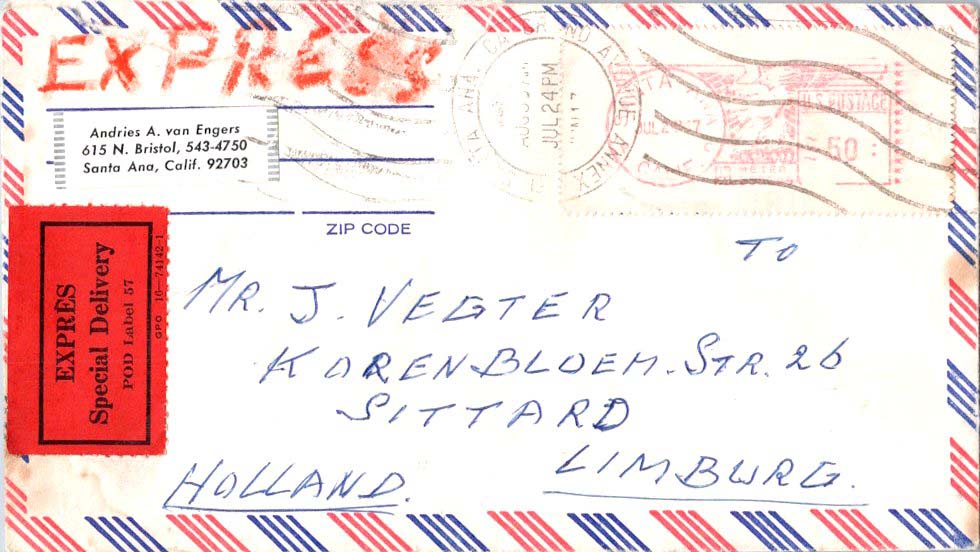 EXPRESS
Andries A. van Engers
615 N. Bristol, 543-4750
Santa Ana, Calif. 92703
ZIP CODE
JUL 24 PM
AVENUE ANNEX
U.S. POSTAGE
50
EXPRÈS
Special Delivery
POD Label 57
GPO 16—74142-1
TO
MR. J. VEGTER
KORENBLOEM. STR. 26
SITTARD
LIMBURG.
HOLLAND.